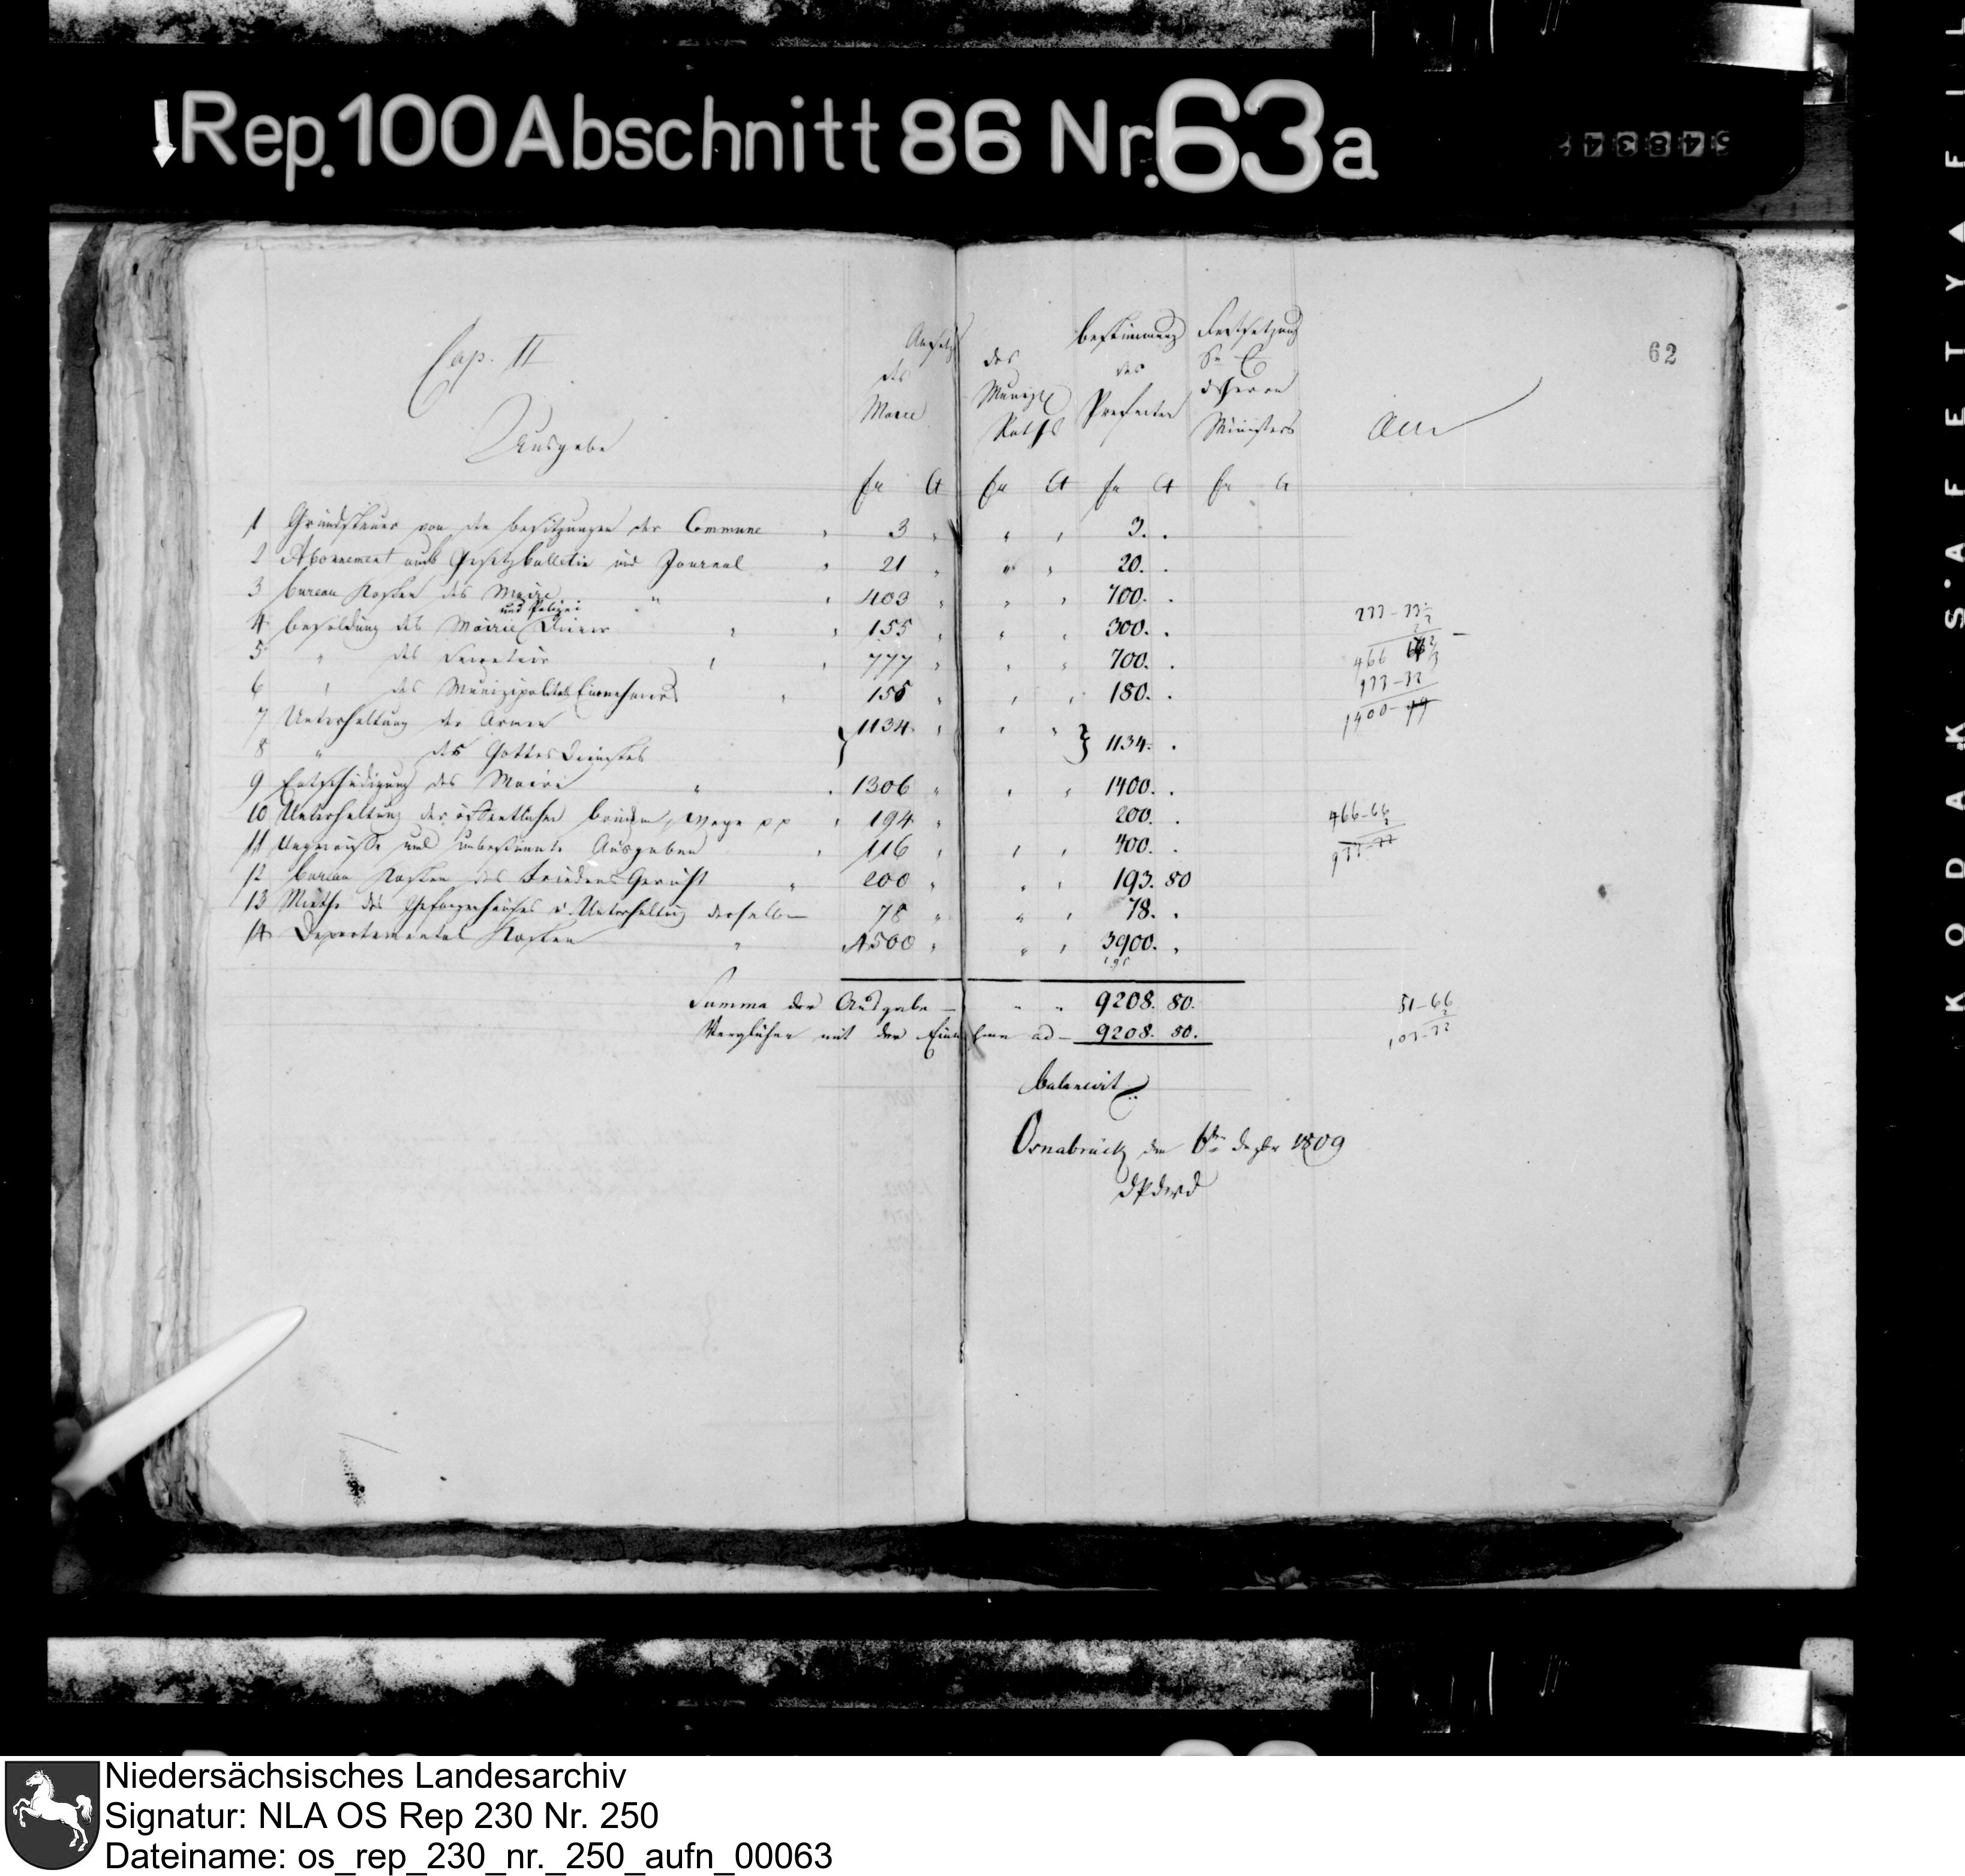 Rep. 100 Abschnitt 86 Nr. 63a
62
Cap. II
Ausgabe
Ansatz
des
Maire
des
Municipl
Raths
Bestimmung
des
Praefecten
Festsetzung
Sr E
des Herrn
Ministers
fr Ct fr Ct fr Ct fr Ct
1 Grundsteuer von den Besitzungen der Commune " 3 " " " 3. .
2 Abonnement aufs Gesetzbulletin und Journal " 21 " " " 20. .
3 Bureau Kosten des Maire " " 403 " " " 700. .
und Polizei
4 Besoldung des Mairie Diener " " 155 " " " 300. .
5 " des Secretair " " 777 " " " 700. .
6 " des Munizipalitäts Einnehmers " 155 " " " 180. .
7 Unterhaltung der Armen } 1134. " " " } 1134. .
8 " des Gottes Dienstes
9 Entschädigung des Maire " . 1306 " " " 1400. .
10 Unterhaltung der öffentlichen Brücken, Wege pp " 194 " 200. .
11 Ungewisse und unbestimmte Ausgaben " 116 " " " 400. .
12 Bureau Kosten des Friedens Gericht " 200 " " " 193. 80
13 Miethe des Gefangenhauses u Unterhaltung derselben 78 " " " 78. .
14 Departemental Kosten " 4500 " " " 3900. .
Summa der Ausgabe — " " 9208. 80.
Verglichen mit der Einnahme ad — 9208. 80.
balancirt
Osnabrück den 6ten Dezbr 1809
DPdWD
466-66
51-66
Niedersächsisches Landesarchiv
Signatur: NLA OS Rep 230 Nr. 250
Dateiname: os_rep_230_nr._250_aufn_00063
KODAK SAFETY FIL